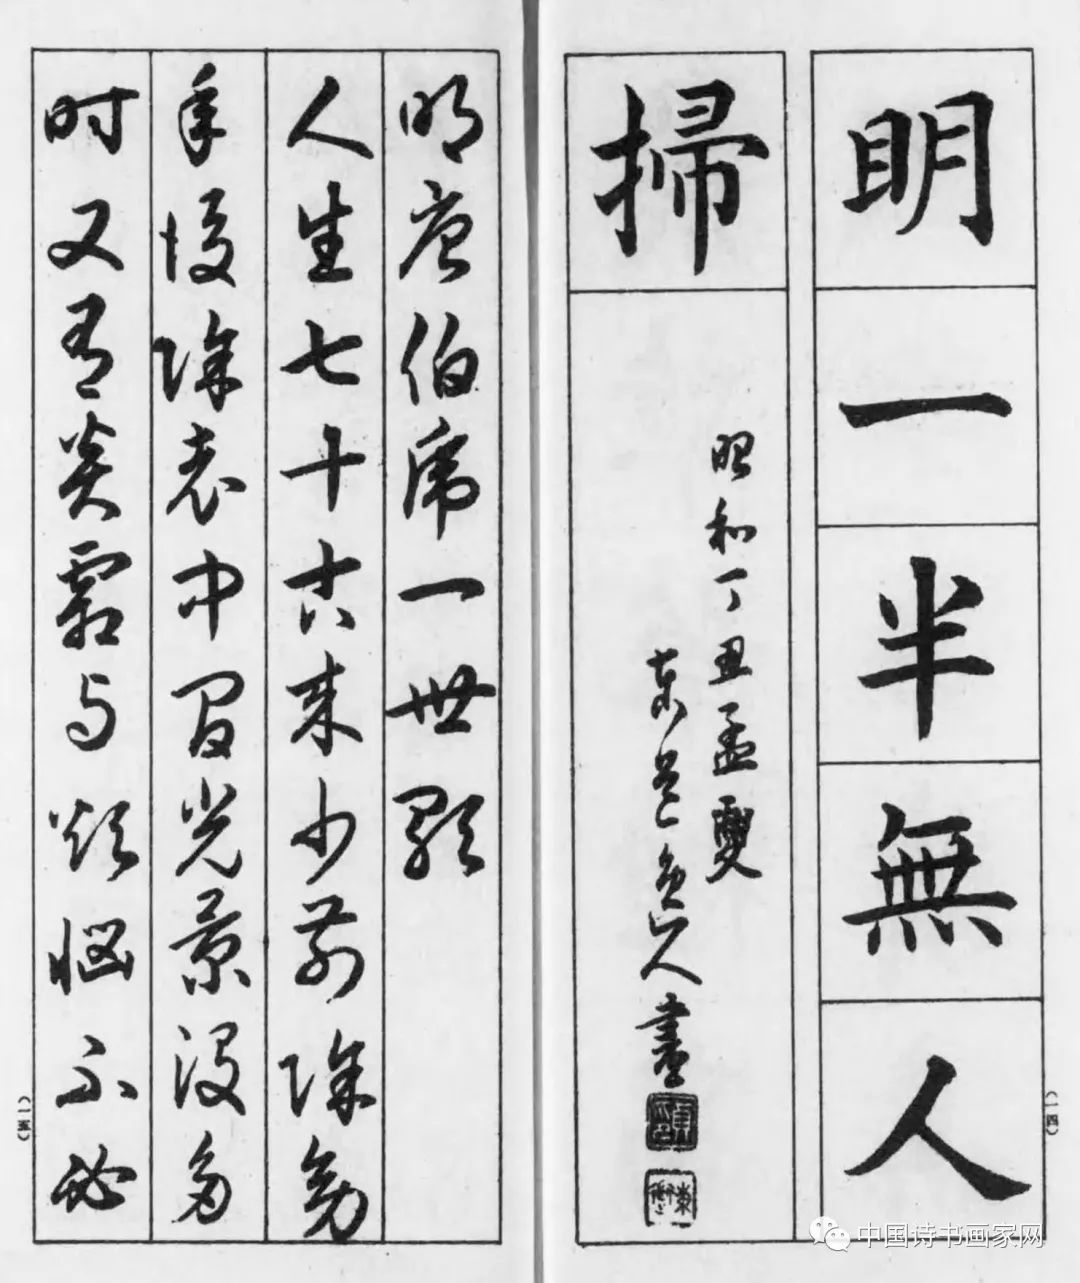 明一半無人
掃
昭和丁丑孟夏
東邑人書
(一四)
明唐伯虎一世歌
人生七十古来少前除幼
年後除老中間光景没多
时又有炎霜与煩惱不必
(一五)
中国诗书画家网